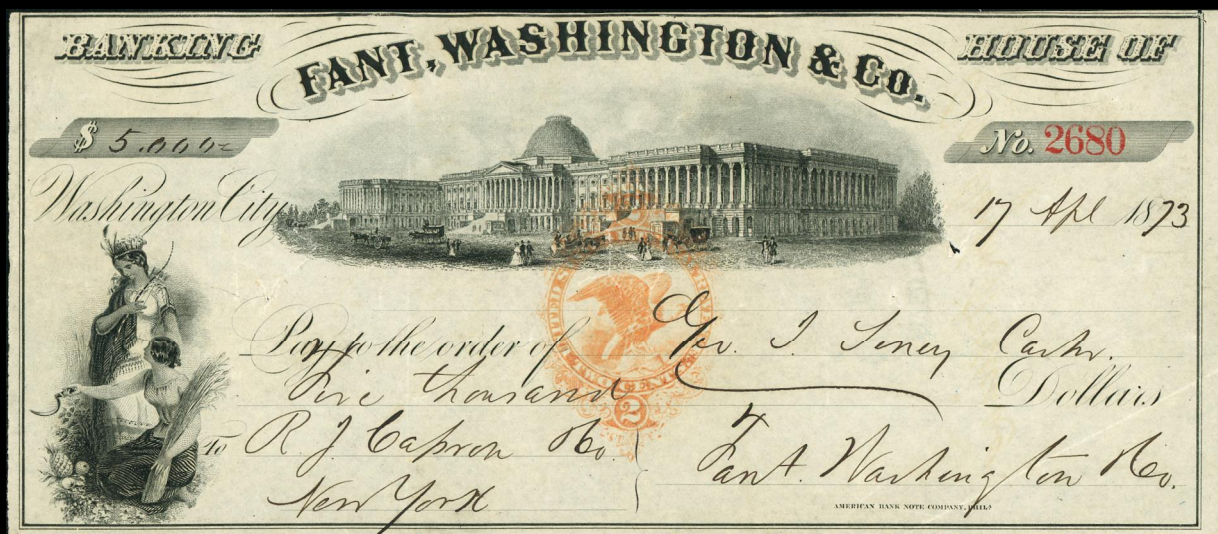 BANKING
FANT, WASHINGTON & Co.
HOUSE OF
$ 5.000=
No. 2680
Washington City
17 Apl 1873
Pay to the order of Geo. I. Seney Cashr.
Five thousand Dollars
To R. J. Capron &Co.
New York
Fant. Washington &Co.
2
AMERICAN BANK NOTE COMPANY, PHILA